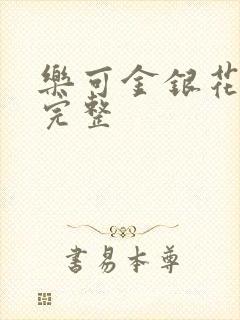 樂可金銀花
完整
書易本尊